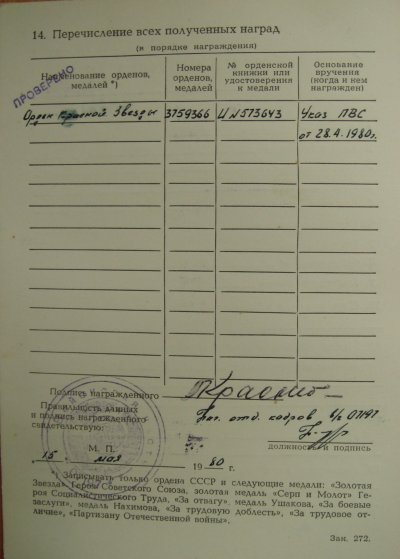 14. Перечисление всех полученных наград
(в порядке награждения)
ПРОВЕРЕНО
Наименование орденов, медалей *)
Номера орденов, медалей
№ орденской книжки или удостоверения к медали
Основание вручения (когда и кем награжден)
Орден Красной Звезды 3759366 И №573643 Указ ПВС
от 28.4.1980г.
Подпись награжденного
Правильность данных
и подпись награжденного
свидетельствую:
Нач. отд. кадров в/ч 07197
должность и подпись
М. П.
15 мая 1980 г.
*) Записывать только ордена СССР и следующие медали: «Золотая
Звезда» Героя Советского Союза, золотая медаль «Серп и Молот» Ге-
роя Социалистического Труда, «За отвагу», медаль Ушакова, «За боевые
заслуги», медаль Нахимова, «За трудовую доблесть», «За трудовое от-
личие», «Партизану Отечественной войны».
Зак. 272.